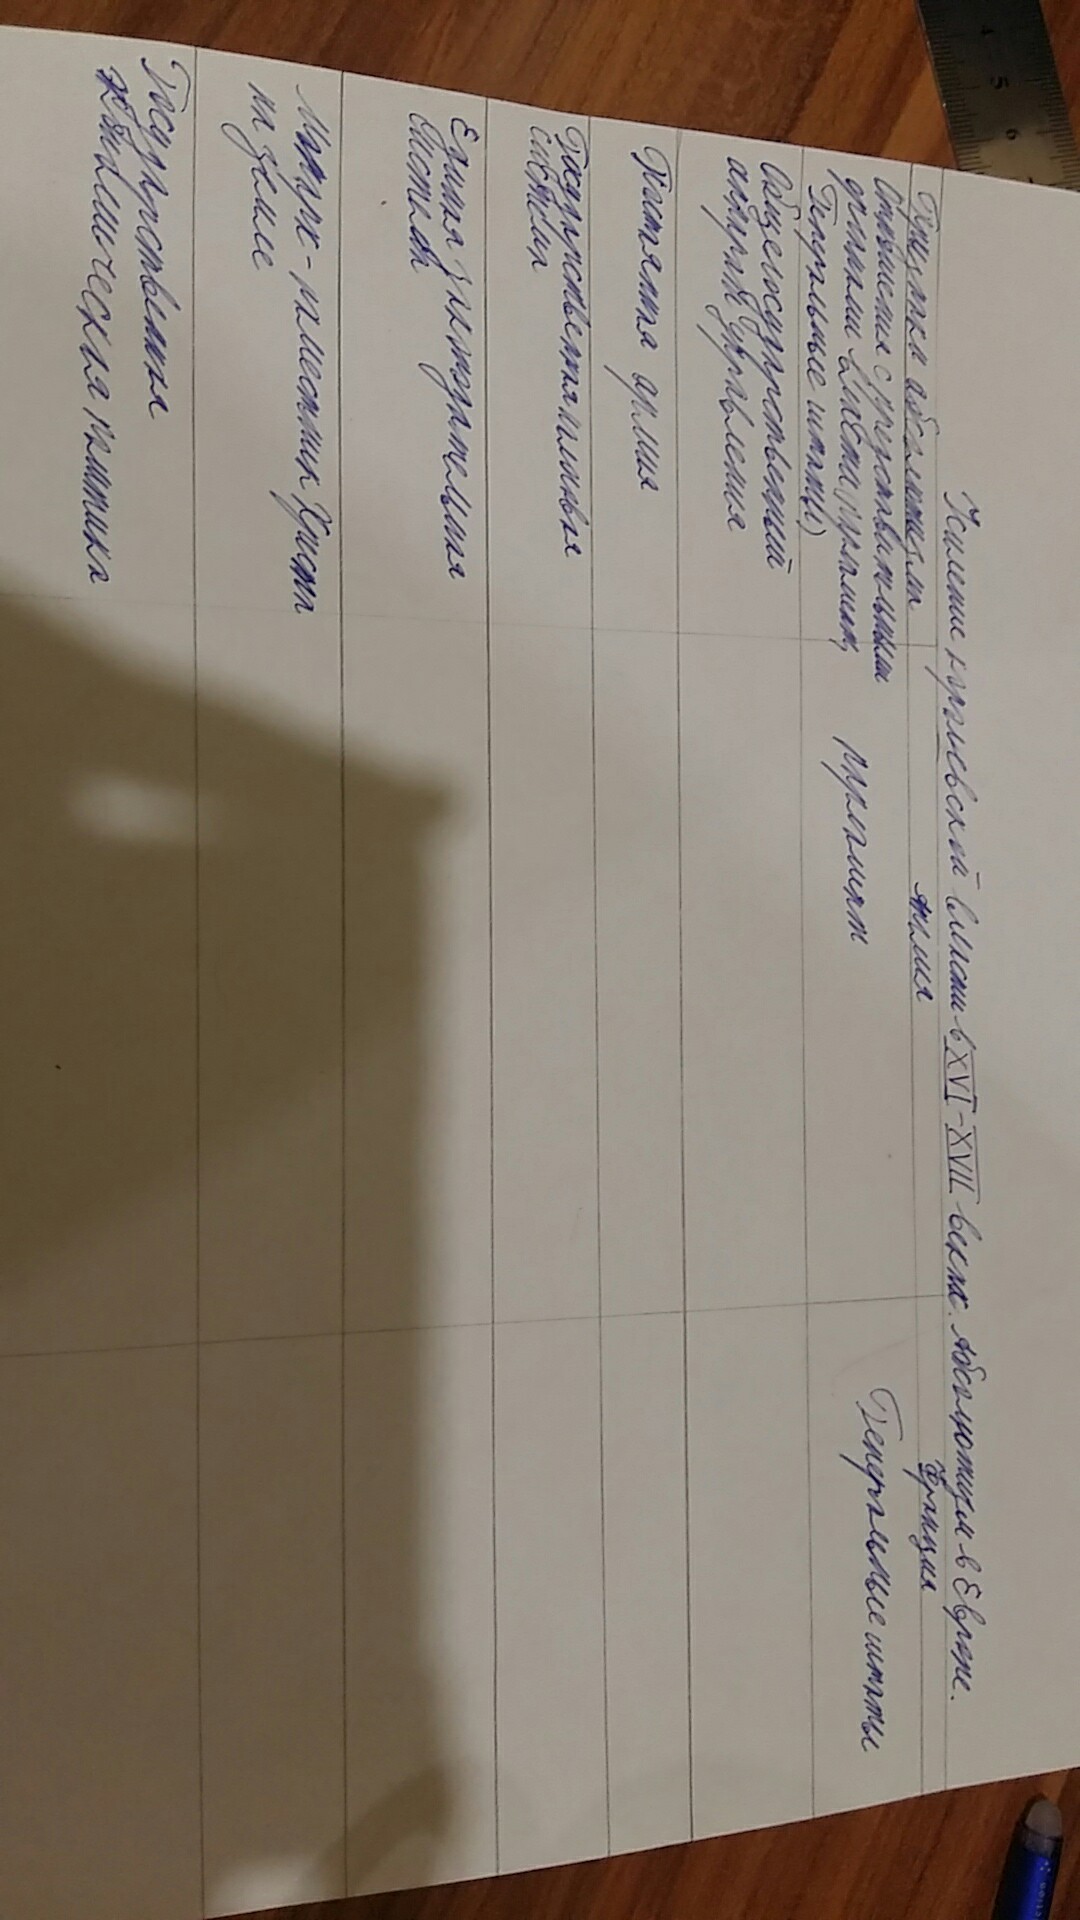 Усиление королевской власти в XVI-XVII веках. Абсолютизм в Европе.
Признаки абсолютизма
Англия
Франция
Отношения с представительными
органами власти (парламент,
Генеральные штаты)
парламент
Генеральные штаты
Общегосударственный
аппарат управления
Постоянная армия
Государственная налоговая
система
Единая законодательная
система
Монарх - наместник Христа
на земле
Государственная
экономическая политика
4 5 6